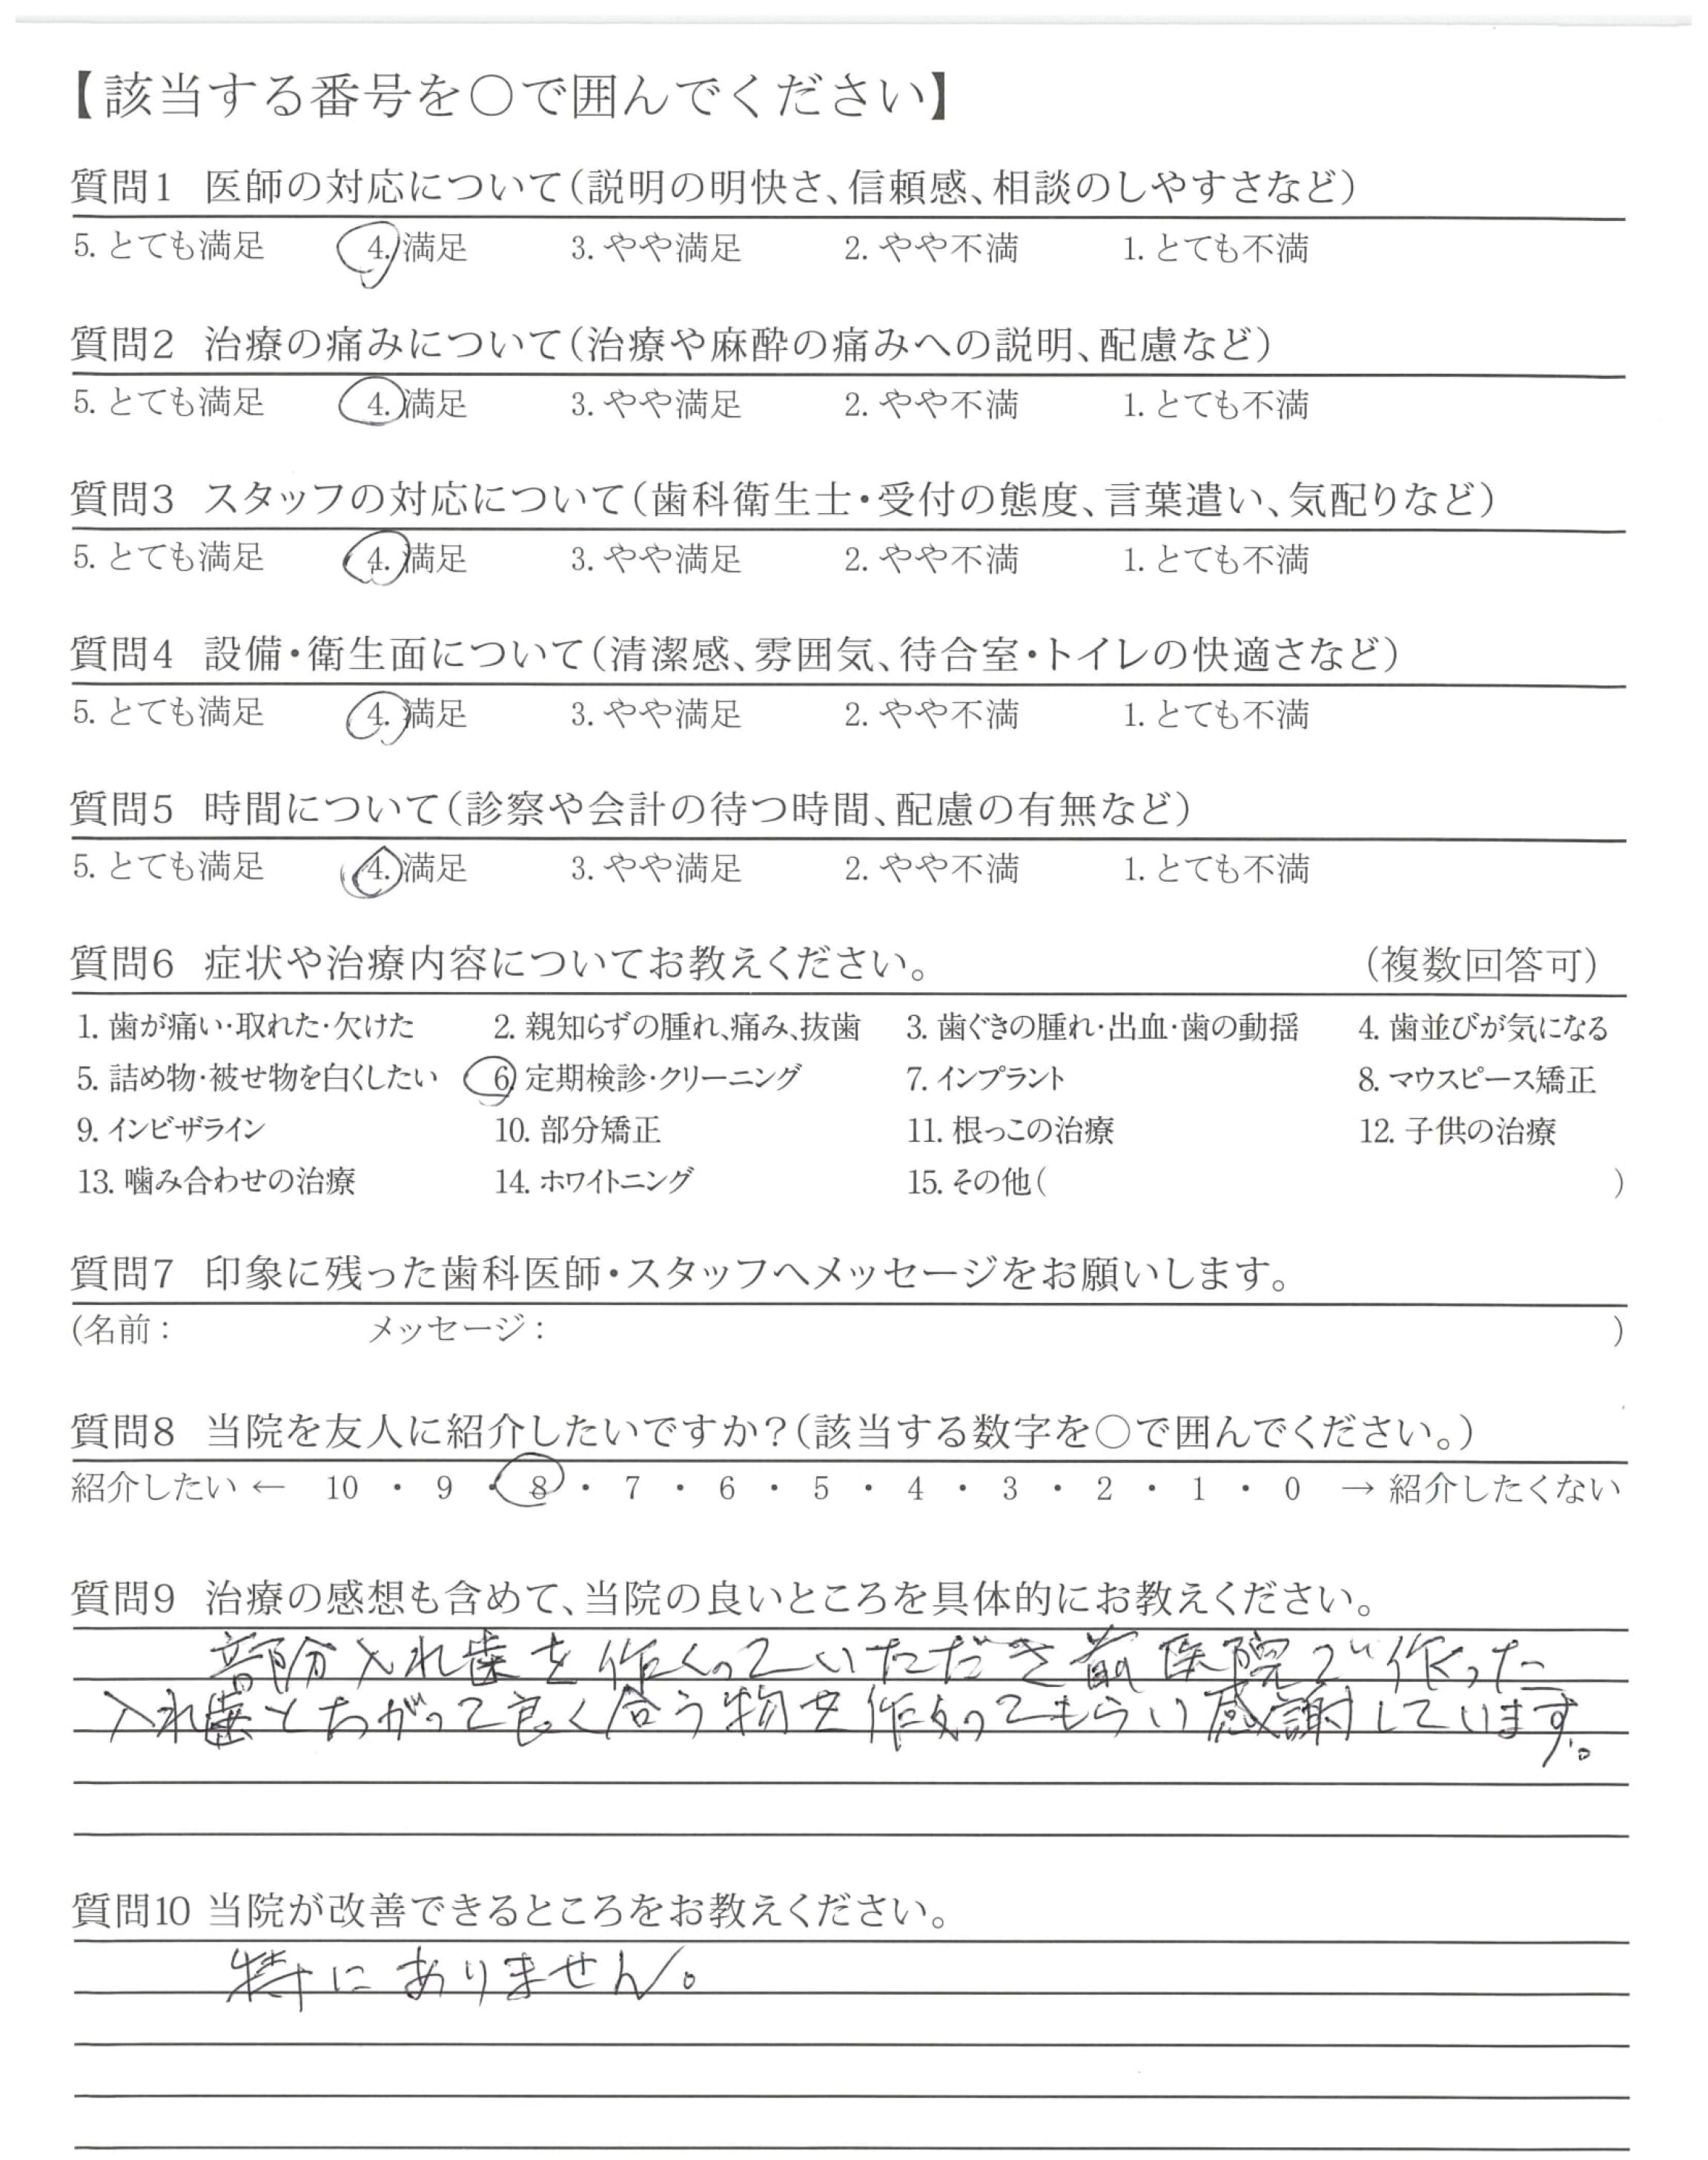 【該当する番号を○で囲んでください】
質問1 医師の対応について(説明の明快さ、信頼感、相談のしやすさなど)
5. とても満足 4. 満足 3. やや満足 2. やや不満 1. とても不満
質問2 治療の痛みについて(治療や麻酔の痛みへの説明、配慮など)
5. とても満足 4. 満足 3. やや満足 2. やや不満 1. とても不満
質問3 スタッフの対応について(歯科衛生士・受付の態度、言葉遣い、気配りなど)
5. とても満足 4. 満足 3. やや満足 2. やや不満 1. とても不満
質問4 設備・衛生面について(清潔感、雰囲気、待合室・トイレの快適さなど)
5. とても満足 4. 満足 3. やや満足 2. やや不満 1. とても不満
質問5 時間について(診察や会計の待つ時間、配慮の有無など)
5. とても満足 4. 満足 3. やや満足 2. やや不満 1. とても不満
質問6 症状や治療内容についてお教えください。 (複数回答可)
1. 歯が痛い・取れた・欠けた 2. 親知らずの腫れ、痛み、抜歯 3. 歯ぐきの腫れ・出血・歯の動揺 4. 歯並びが気になる
5. 詰め物・被せ物を白くしたい 6. 定期検診・クリーニング 7. インプラント 8. マウスピース矯正
9. インビザライン 10. 部分矯正 11. 根っこの治療 12. 子供の治療
13. 噛み合わせの治療 14. ホワイトニング 15. その他( )
質問7 印象に残った歯科医師・スタッフへメッセージをお願いします。
(名前: メッセージ: )
質問8 当院を友人に紹介したいですか?(該当する数字を○で囲んでください。)
紹介したい ← 10 ・ 9 ・ 8 ・ 7 ・ 6 ・ 5 ・ 4 ・ 3 ・ 2 ・ 1 ・ 0 → 紹介したくない
質問9 治療の感想も含めて、当院の良いところを具体的にお教えください。
部分入れ歯を作くっていただき前医院で作った
入れ歯とちがって良く合う物を作くってもらい感謝しています。
質問10 当院が改善できるところをお教えください。
特にありません。